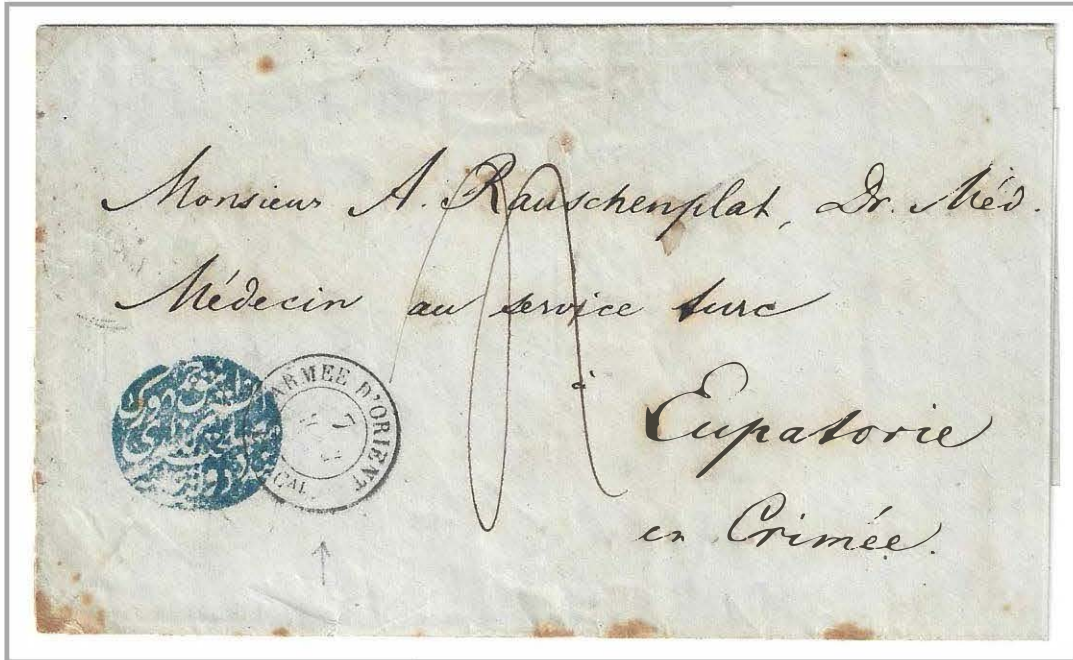 Monsieur A. Rauschenplat, Dr. Méd.
Médecin au service turc
à
Eupatorie
en Crimée.
ARMEE D'ORIENT
7
CAL.